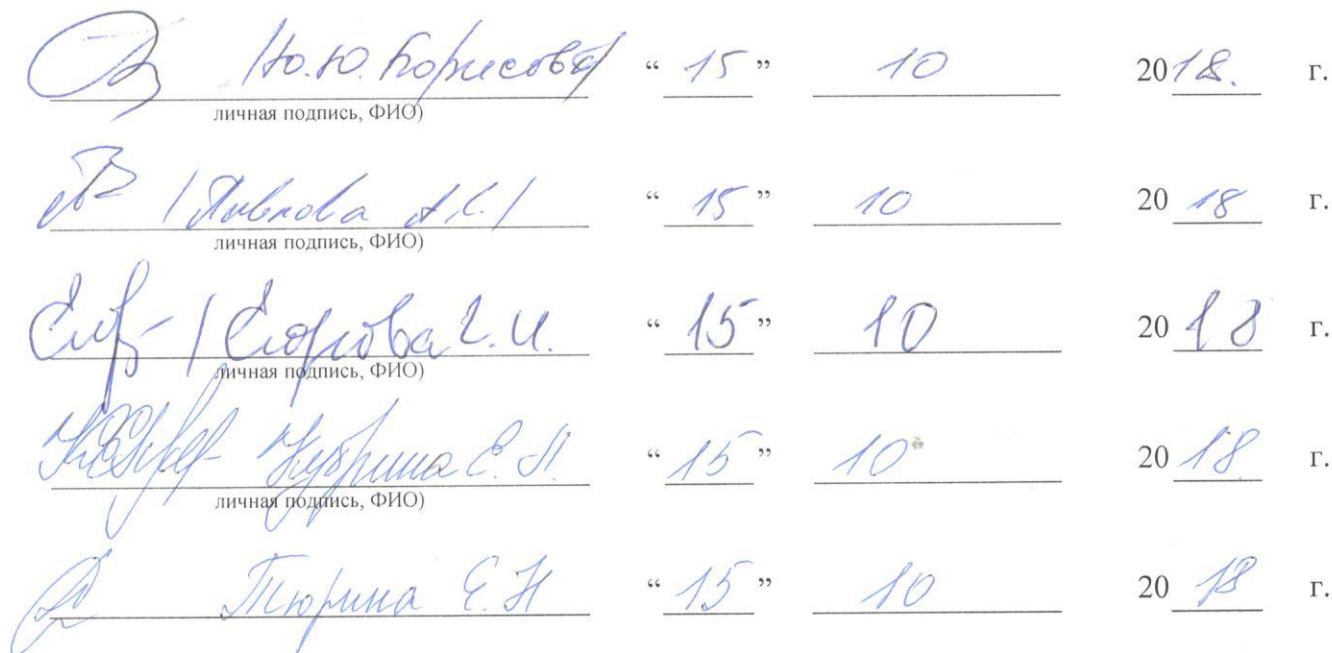 Ю.Ю. Борисова “ 15 ” 10 2018. г.
личная подпись, ФИО)
/ Павлова А.С. / “ 15 ” 10 20 18 г.
личная подпись, ФИО)
/ Егорова Г.И. “ 15 ” 10 20 18 г.
личная подпись, ФИО)
Кубрина Е.Н. “ 15 ” 10 20 18 г.
личная подпись, ФИО)
Тюрина Е.Н “ 15 ” 10 20 18 г.